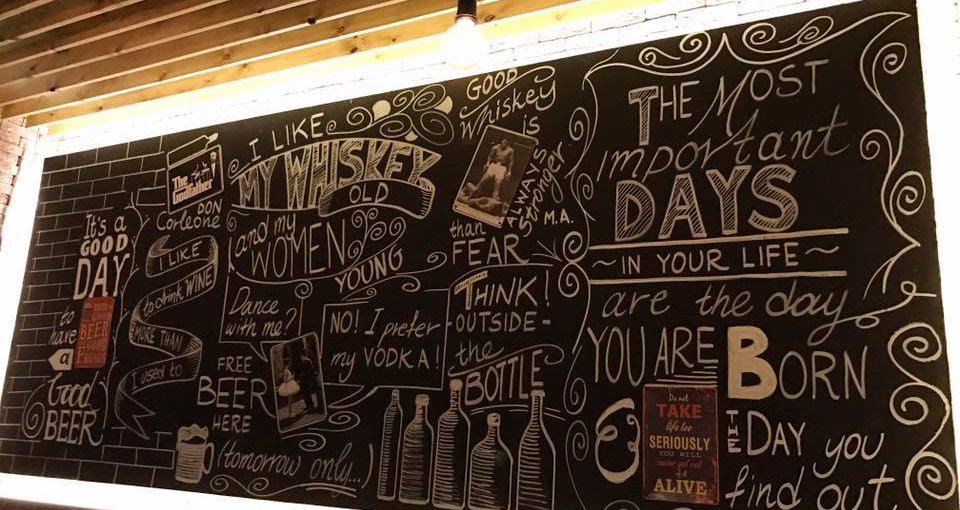 It's a
GOOD
DAY
to
have
a
Good
BEER
The
Godfather
DON
Corleone
I LIKE
to drink WINE
MORE THAN
I used to
I LIKE
MY WHISKEY
OLD
and my
WOMEN
YOUNG
Dance
with me?
NO! I prefer
my VODKA!
FREE
BEER
HERE
(tomorrow only...)
GOOD
Whiskey
is
ALWAYS
stronger
than
FEAR
M.A.
THINK!
OUTSIDE-
the
BOTTLE
THE MOST
important
DAYS
~ IN YOUR LIFE ~
are the day
YOU ARE BORN
&
THE DAY you
find out
Do not
TAKE
life too
SERIOUSLY
YOU WILL
never get out
of it
ALIVE